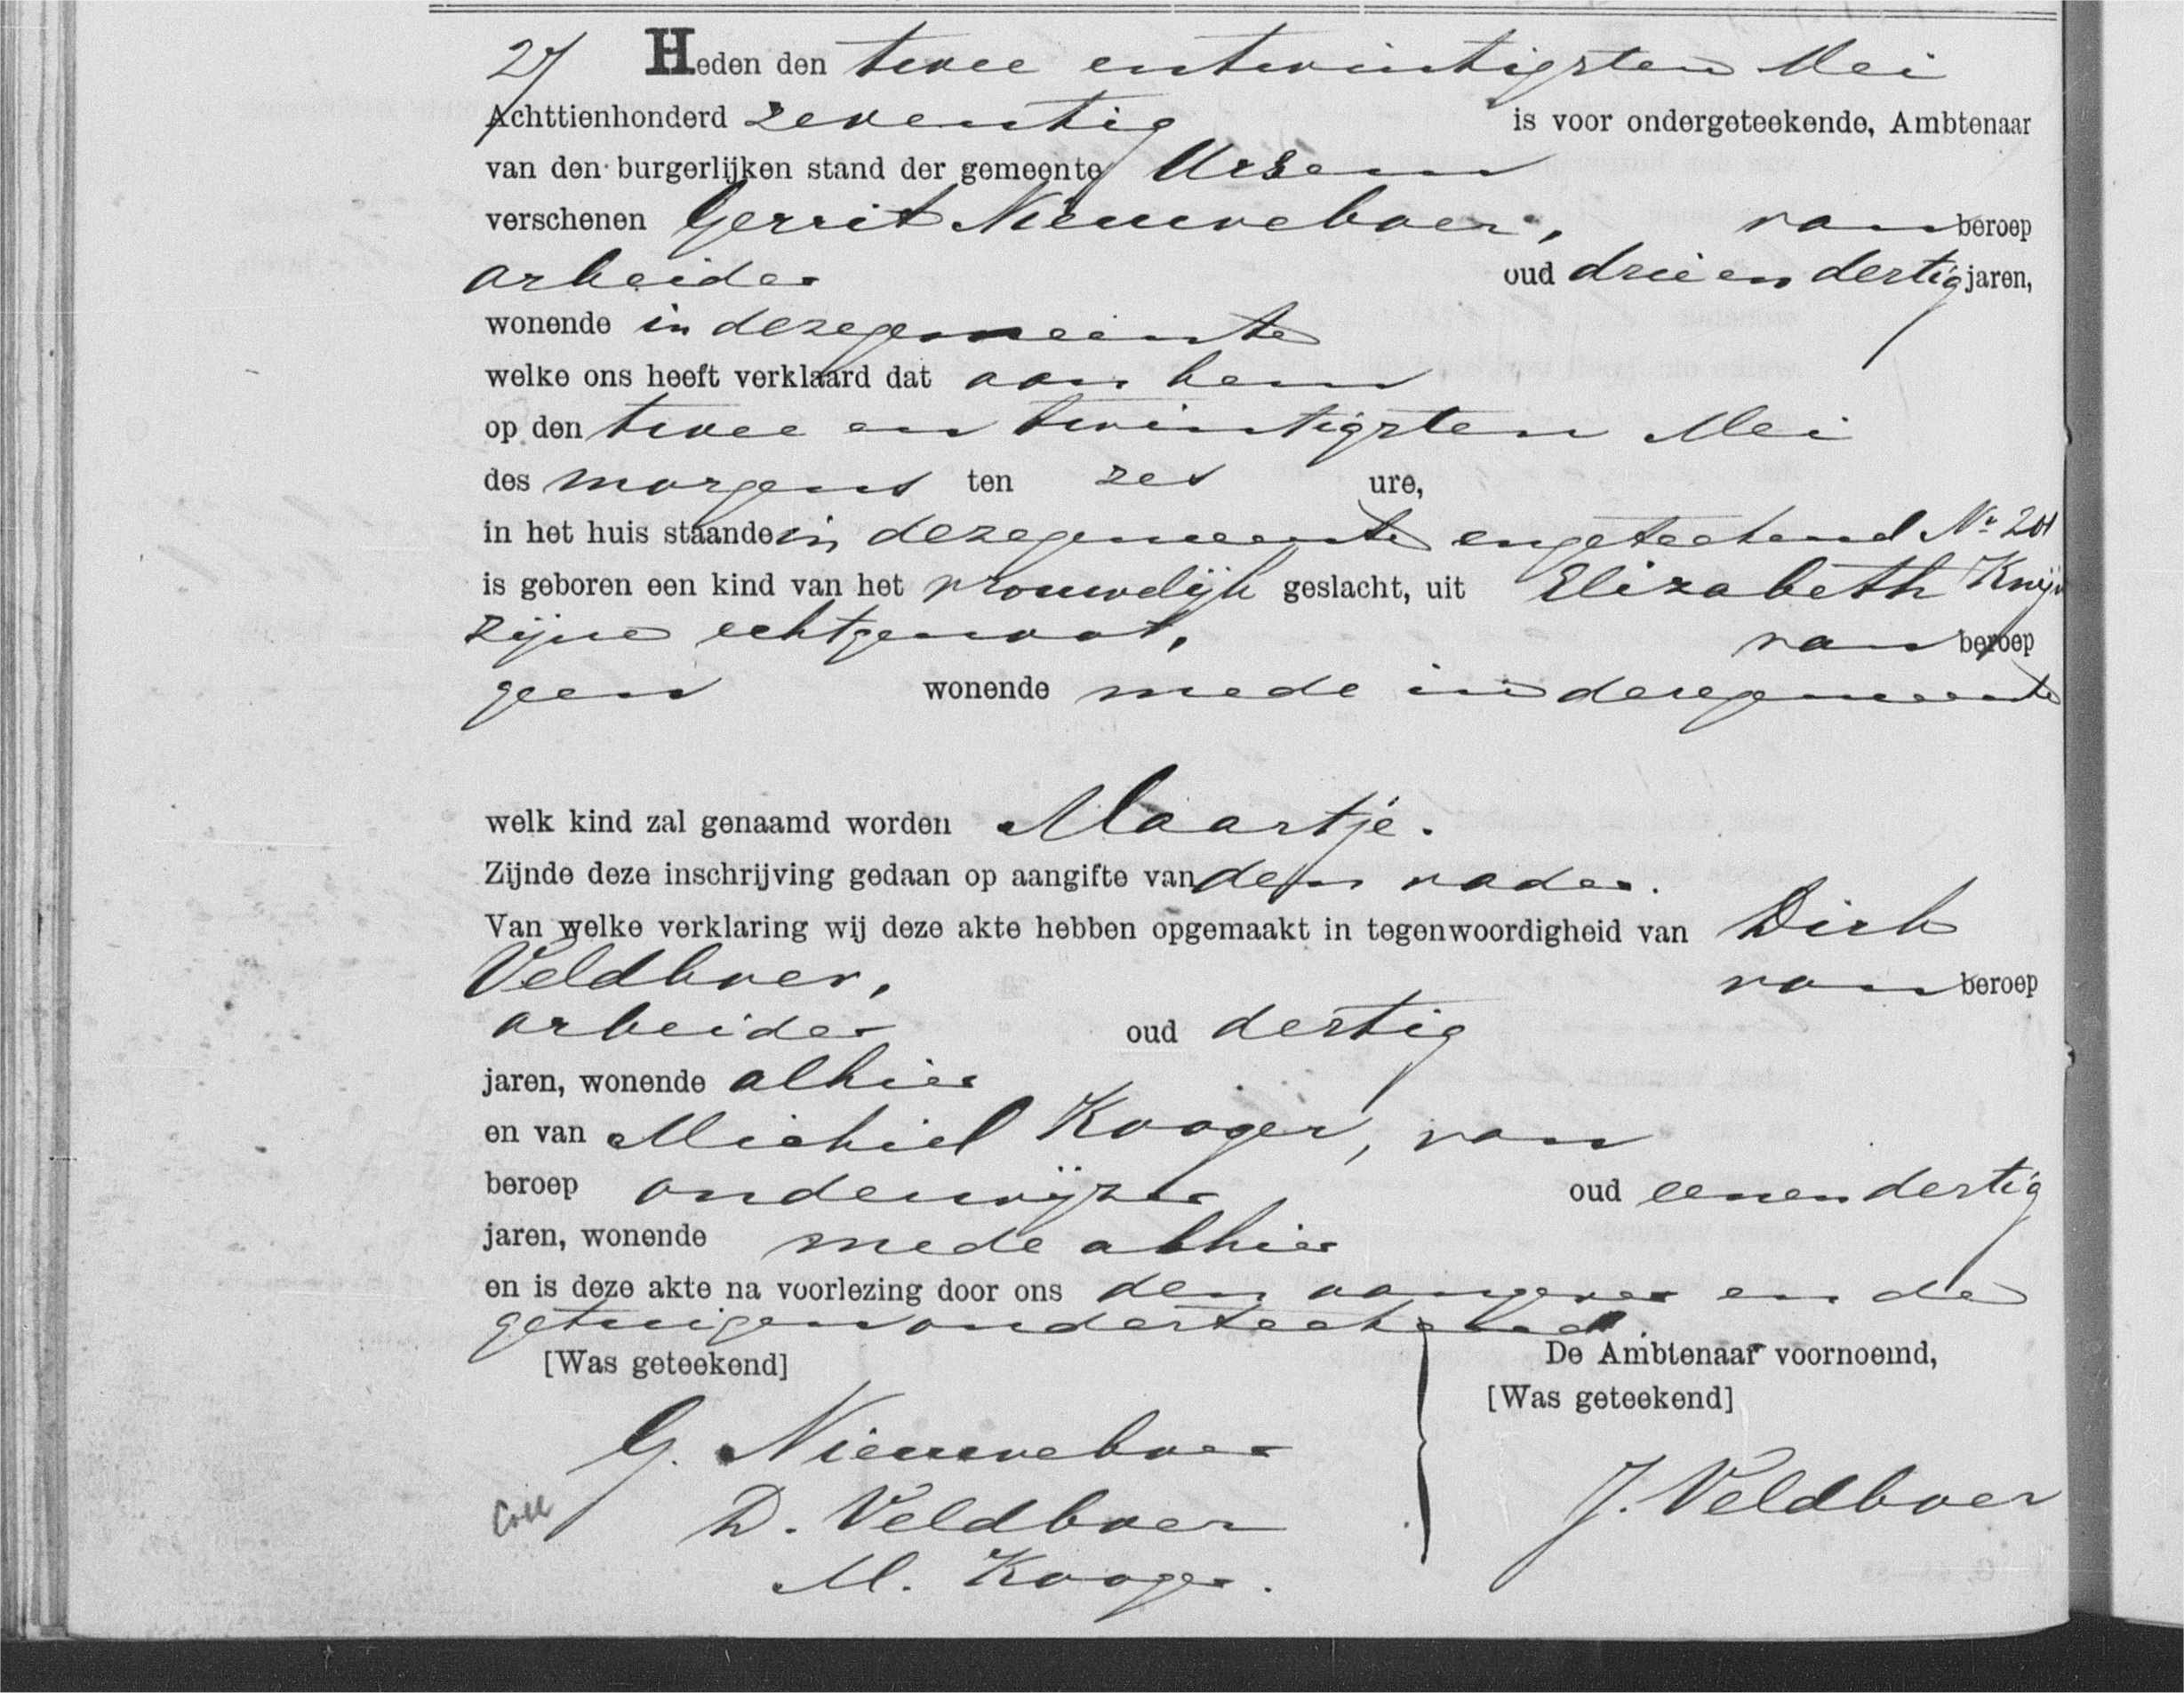 27 Heden den twee entwintigsten Mei
Achttienhonderd zeventig is voor ondergeteekende, Ambtenaar
van den burgerlijken stand der gemeente Ursem
verschenen Gerrit Nieuweboer, van beroep
arbeider oud drie en dertig jaren,
wonende in dezegemeente
welke ons heeft verklaard dat aan hem
op den twee en twintigsten Mei
des morgens ten zes ure,
in het huis staande in dezegemeente engeteekend Nr 201
is geboren een kind van het vrouwelijk geslacht, uit Elizabeth
zijne echtgenoot, van beroep
geen wonende mede in dezegemeente
welk kind zal genaamd worden Maartje.
Zijnde deze inschrijving gedaan op aangifte van den vader.
Van welke verklaring wij deze akte hebben opgemaakt in tegenwoordigheid van Dirk
Veldboer, van beroep
arbeider oud dertig
jaren, wonende alhier
en van Michiel Kooger, van
beroep onderwijzer oud eenen dertig
jaren, wonende mede alhier
en is deze akte na voorlezing door ons den aangever en de
getuigen onderteekend.
[Was geteekend] De Ambtenaar voornoemd,
[Was geteekend]
G. Nieuweboer
D. Veldboer J. Veldboer
Coll M. Kooger.